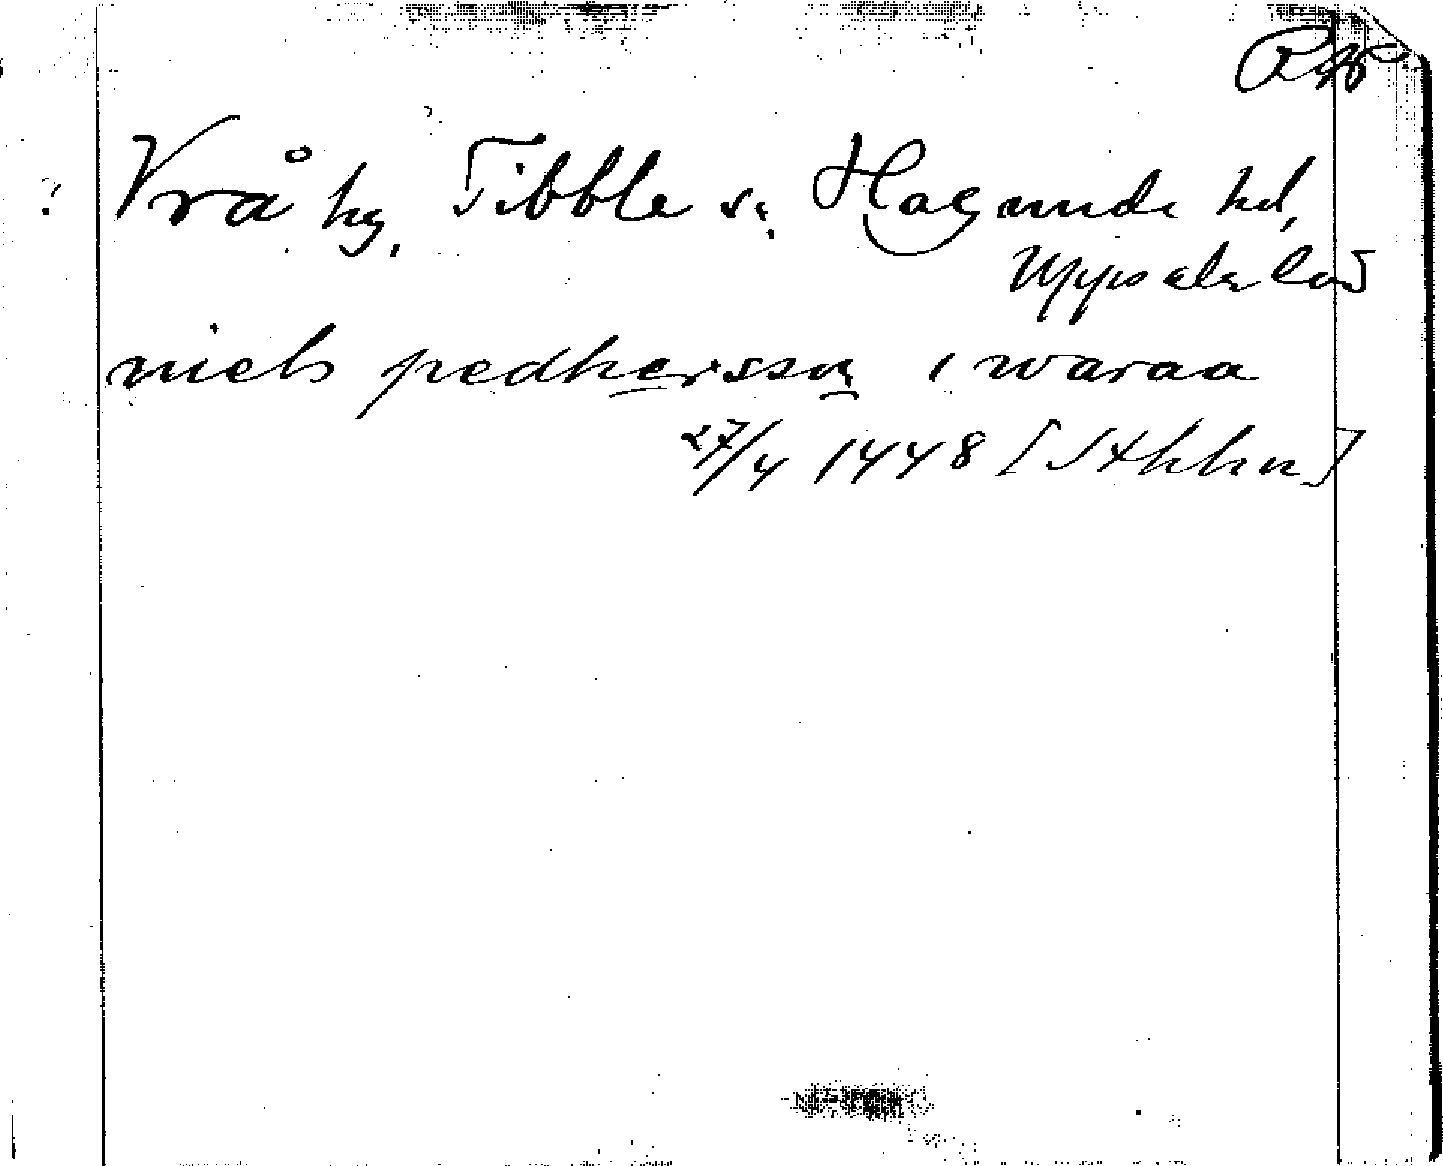 ? Vrå by, Tibble s. Hagunda hd,
Uppsala län
niels pedhersson i waraa
27/4 1448 [Sthlm]